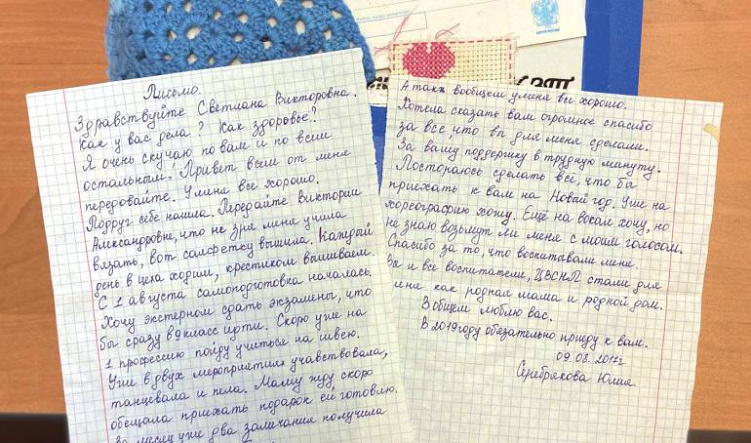 Письмо.
Здравствуйте Светлана Викторовна.
Как у вас дела? Как здоровье?
Я очень скучаю по вам и по всем
остальным. Привет всем от меня
передовайте. У меня все хорошо.
Подруг себе нашла. Передайте Виктории
Александровне, что не зря меня учила
вязать, вот салфетку вышила. Каждый
день в цеха ходим, крестиком вышиваем.
С 1 августа самоподготовка началась.
Хочу экстерном сдать экзамены, что
бы сразу в 9 класс идти. Скоро уже на
1 профессию пойду учиться на швею.
Уже в двух мероприятия учавствовала,
танцевала и пела. Маму жду, скоро
обещала приехать подарок ей готовлю.
За месяц уже два замечания получила
А так вообщем у меня вы хорошо.
Хотела сказать вам огромное спасибо
за все что вы для меня сделали.
За вашу поддержку в трудную минуту.
Постораюсь сделать все, что бы
приехать к вам на Новый год. Уже на
хореографию хожу. Ещё на вокал хочу, но
не знаю возьмут ли меня с моим голосом.
Спасибо за то, что воспитавали меня.
Вы и все воспитатели, ЦВСНП стали для
меня как родная мама и родной дом.
В общем люблю вас.
В 2019 году обязательно приеду к вам.
09.08.2017г
Серебрякова Юлия